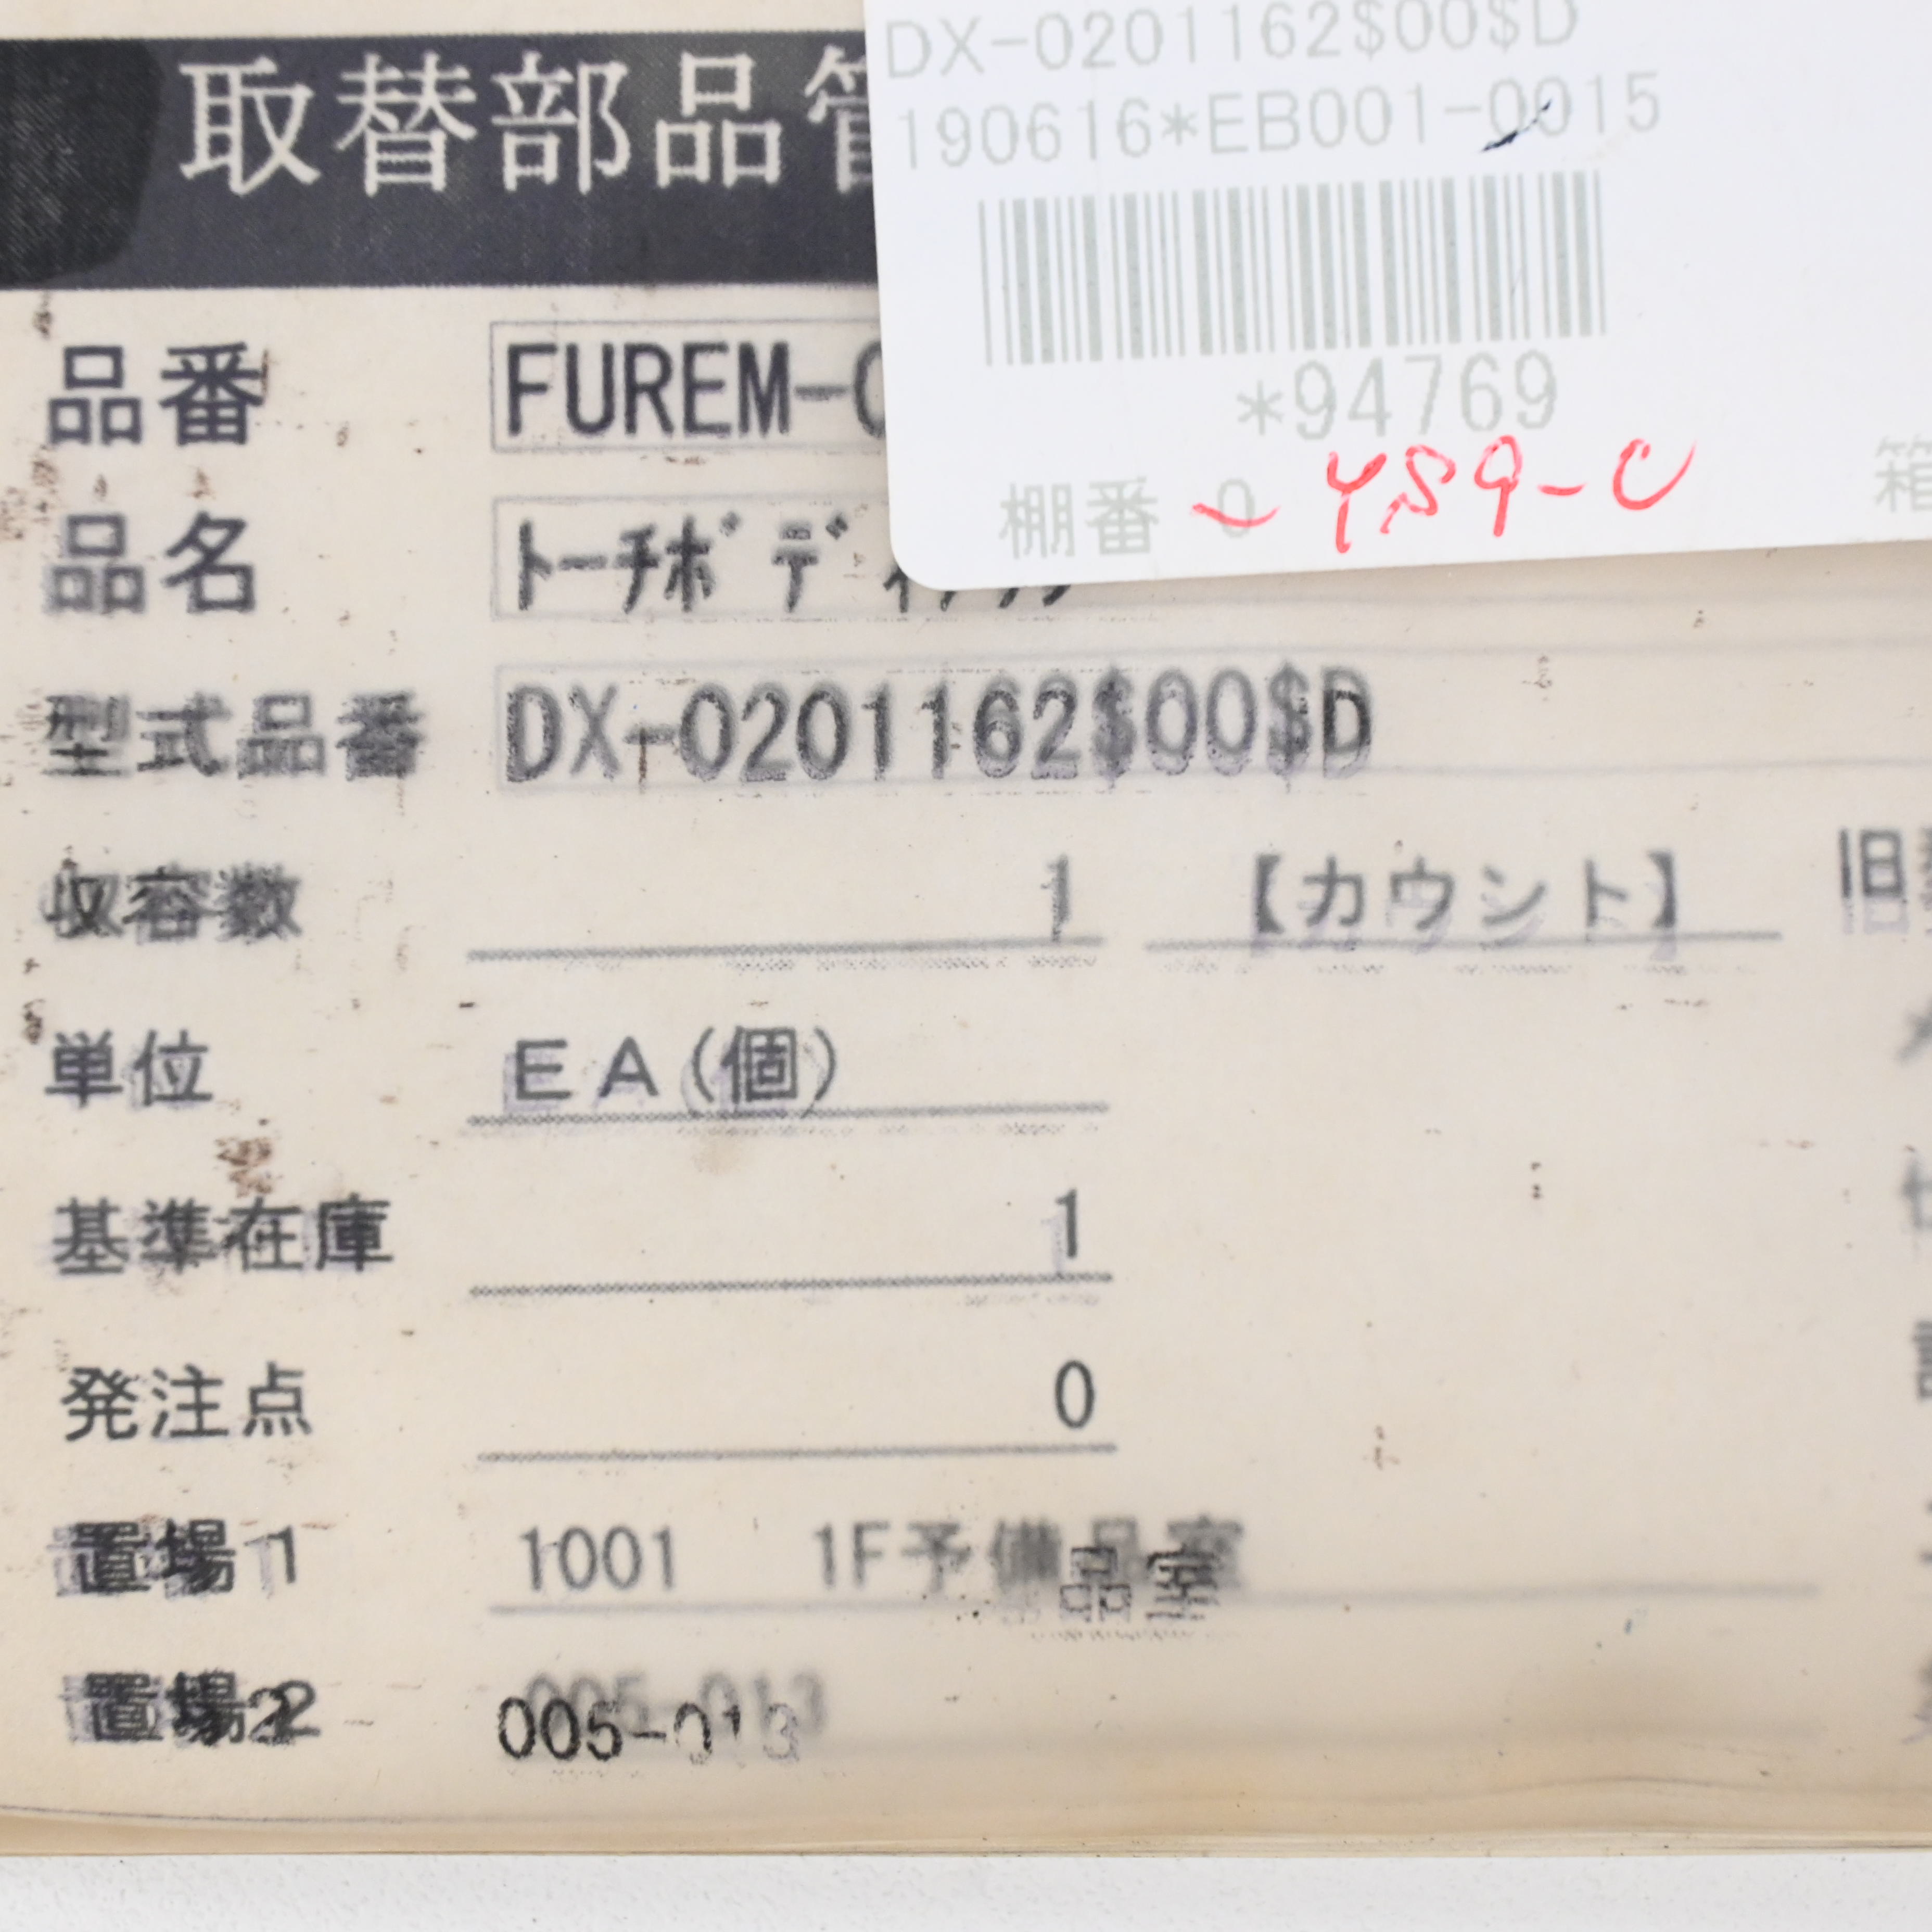 DX-0201162$00$D
190616*EB001-0015
*94769
棚番 0 YS9-C
箱
取替部品管
品番 FUREM-
品名 ﾄｰﾁﾎﾞﾃﾞｨ
型式品番 DX-0201162$00$D
収容数 1 【カウント】 旧
単位 EA(個)
基準在庫 1
発注点 0
置場1 1001 1F予備品室
置場2 005-013